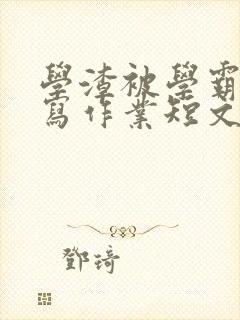 學渣被學霸
寫作業短文
鄧琦